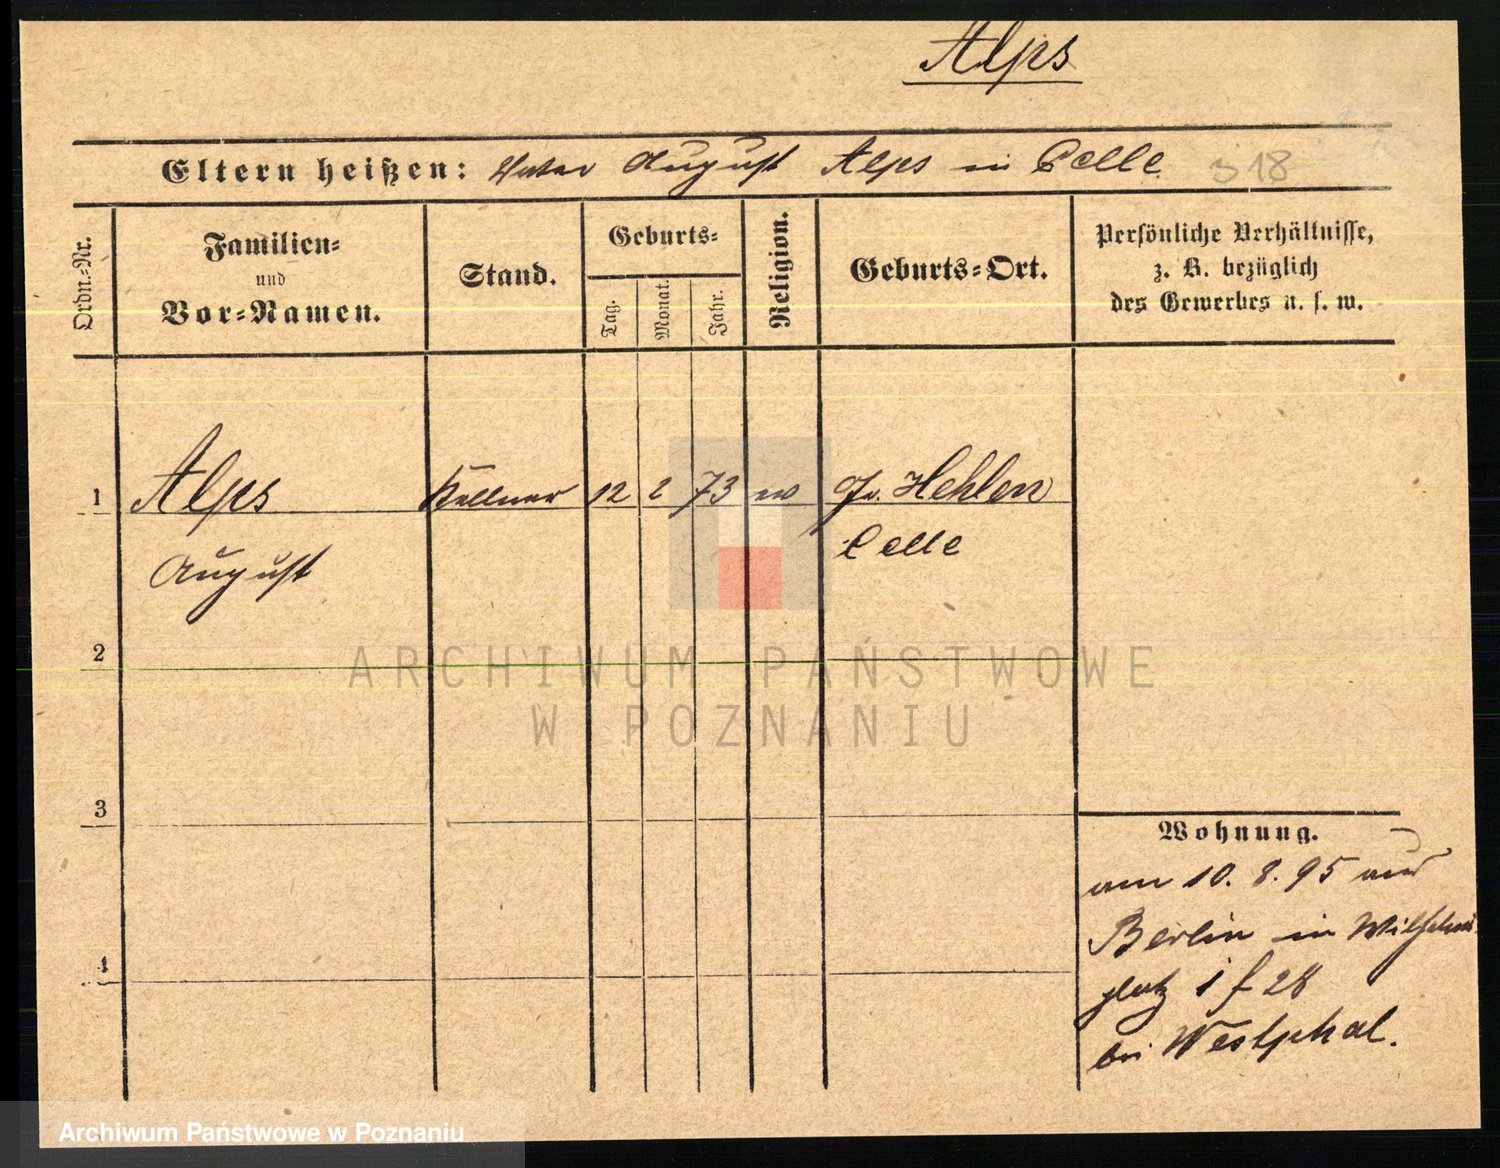 Alps
Eltern heißen: Vater August Alps in Celle 318
Ordn.=Nr.
Familien=
und
Vor=Namen.
Stand.
Geburts=
Tag.
Monat.
Jahr.
Religion.
Geburts=Ort.
Persönliche Verhältnisse,
z. B. bezüglich
des Gewerbes u. s. w.
1 Alps Kellner 12 2 73 ev Gr. Hehlen
August Celle
2
3
4
Wohnung.
am 10. 8. 95 aus
Berlin in Wilhelms
platz 1 f 28
bei Westphal.
ARCHIWUM PAŃSTWOWE
W POZNANIU
Archiwum Państwowe w Poznaniu